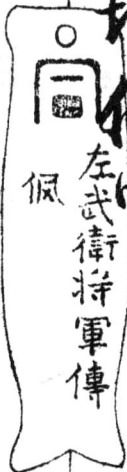 同
左武衛將軍傳
佩